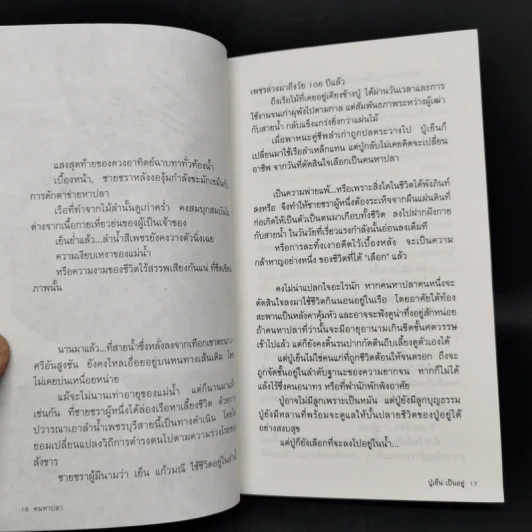 แสงสุดท้ายของดวงอาทิตย์ฉาบทาทั่วท้องน้ำ
เบื้องหน้า, ชายชราหลังงองุ้มกำลังชะมักเขม้นกับ
การดักตาข่ายหาปลา
เรือที่ทำจากไม้ลำนั้นดูเก่าคร่ำ คงสมบุกสมบัน
ต่างจากเนื้อกายเหี่ยวย่นของผู้เป็นเจ้าของ
เย็นย่ำแล้ว...ลำน้ำสีเพชรยังคงวางตัวนิ่งเฉย
ความเงียบเหงาของแม่น้ำ
หรือความงามของชีวิตไร้สรรพเสียงกันแน่ ที่ชัดเจน
ภาพนั้น
นานมาแล้ว...ที่สายน้ำซึ่งหลั่งลงจากเทือกเขาตะนาว-
ศรีอันสูงชัน ยังคงไหลเอื่อยอยู่บนหนทางเส้นเดิม
ไม่เคยเหน็ดเหนื่อยหน่าย
แม้จะไม่นานเท่าอายุของแม่น้ำ แต่ก็นานมาแล้ว
เช่นกัน ที่ชายชราผู้หนึ่งได้ล่องเรือหาเลี้ยงชีวิต ด้วยการ
ปวารณาเอาลำน้ำเพชรบุรีสายนี้เป็นทางดำเนิน โดย
ยอมเปลี่ยนแปลงวิถีการดำรงตนไปตามความร่วงโรยของ
สังขาร
ชายชราผู้มีนามว่า เย็น แก้วมณี ใช้ชีวิตอยู่ในลำน้ำ
16 คนหาปลา
เพชรล่วงมาถึงวัย 106 ปีแล้ว
ถึงเรือไม้ที่เคยอยู่เคียงข้างปู่ ได้ผ่านวันเวลาและการ
ใช้งานจนเก่าผุพังไปตามกาล แต่สัมพันธภาพระหว่างผู้เฒ่า
กับสายน้ำ กลับแข็งแกร่งยิ่งกว่าแผ่นไม้
เมื่อพาหนะคู่ชีพลำเก่าถูกปลดระวางไป ปู่เย็นก็
เปลี่ยนมาใช้เรือลำเหล็กแทน แต่ปู่กลับไม่เคยคิดจะเปลี่ยน
อาชีพ จากวันที่ตัดสินใจเลือกเป็นคนหาปลา
เป็นความพ่ายแพ้...หรือเพราะสิ่งใดในชีวิตได้พังภินท์
ลงหรือ จึงทำให้ชายชราผู้หนึ่งต้องระเห็จจากผืนแผ่นดินที่
ก่อเกิดให้เป็นตัวเป็นตนมาเกือบทั้งชีวิต ลงไปฝากฝังกาย
กับสายน้ำ ในวันวัยที่เรี่ยวแรงกำลังนั้นอ่อนลงเต็มที
หรือการละทิ้งเงาอดีตไว้เบื้องหลัง จะเป็นความ
กล้าหาญอย่างหนึ่ง ของชีวิตที่ได้ 'เลือก' แล้ว
คงไม่น่าแปลกใจอะไรนัก หากคนหาปลาคนหนึ่งจะ
ตัดสินใจลงมาใช้ชีวิตกินนอนอยู่ในเรือ โดยอาศัยใต้ท้อง
สะพานเป็นหลังคาคุ้มหัว และอาจจะฟังดูน่าทึ่งอยู่สักหน่อย
ถ้าคนหาปลาที่ว่านั้นจะมีอายุอานามเกินขีดชั้นศตวรรษ
เข้าไปแล้ว แต่ก็ยังคงดิ้นรนปากกัดตีนถีบเลี้ยงดูตัวเองได้
แต่ปู่เย็นไม่ใช่คนแก่ที่ถูกชีวิตต้อนให้จนตรอก ถึงจะ
ถูกจัดชั้นอยู่ในลำดับฐานะของความยากจน หากก็ไม่ได้
แล้งไร้ซึ่งคนอนาทร หรือที่พำนักพักพิงอาศัย
ปู่อาจไม่มีลูกเพราะเป็นหมัน แต่ปู่ยังมีลูกบุญธรรม
ปู่ยังมีหลานที่พร้อมจะดูแลให้บั้นปลายชีวิตของปู่อยู่ได้
อย่างสงบสุข
แต่ปู่ก็ยังเลือกที่จะลงไปอยู่ในน้ำ...
ปู่เย็น เป็นอยู่ 17